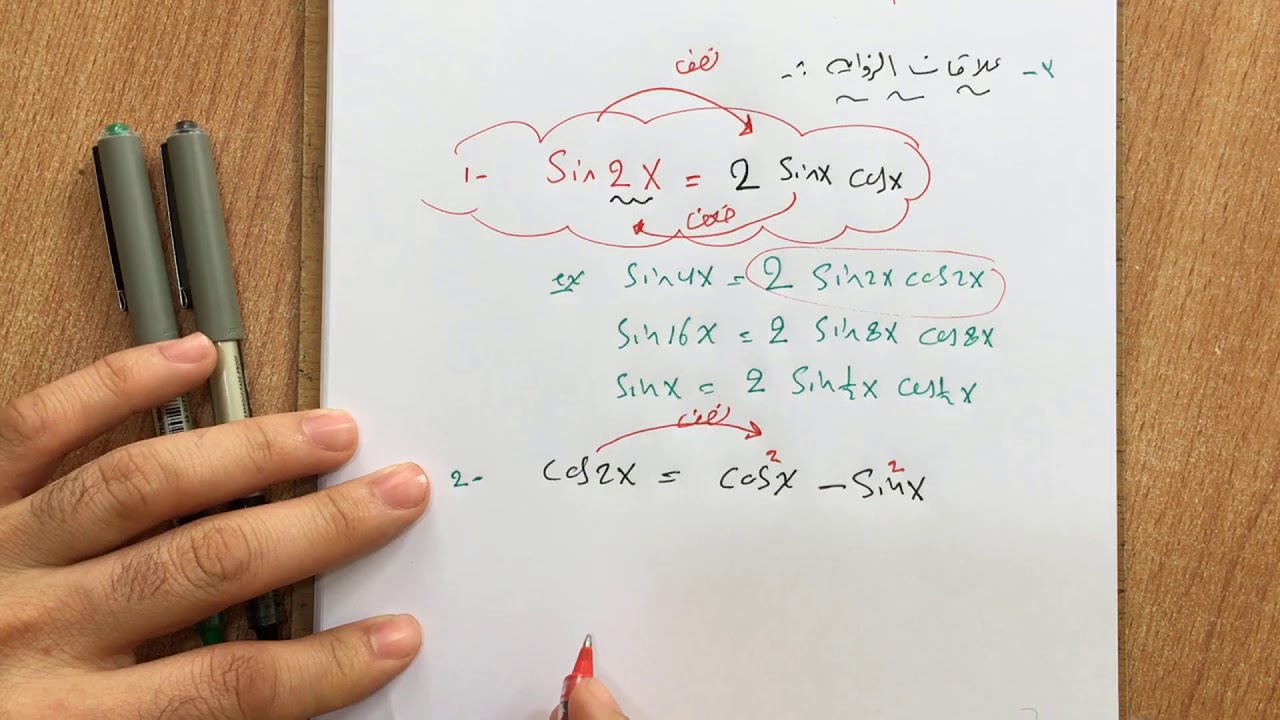 ٢- علاقات الزوايه :-
نصف
1- Sin 2X = 2 Sinx cosx
ضعف
ex Sin4X = 2 Sin2X cos2X
Sin16X = 2 Sin8X cos8X
SinX = 2 Sin½X cos½X
نصف
2- cos2X = cos²X - Sin²X